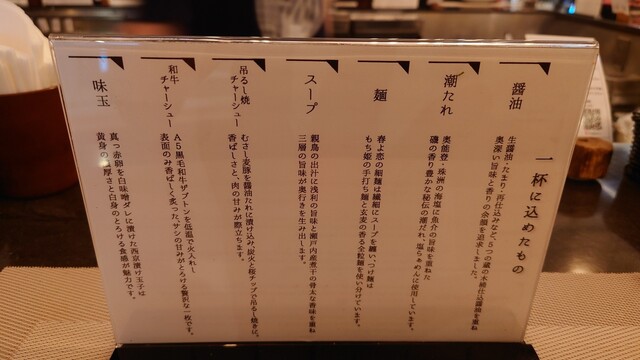 一杯に込めたもの
醤油
生醤油・たまり・再仕込みなど、5つの蔵の木桶仕込醤油を重ね
奥深い旨味と香りの余韻を追求しました。
潮だれ
奥能登・珠洲の海塩に魚介の旨味を重ねた
磯の香り豊かな秘伝の潮だれ。塩らぁめんに使用しています。
麺
春よ恋の細麺は繊細にスープを纏い、つけ麺は
もち姫の手打ち麺と玄麦の香る全粒麺を使い分けています。
スープ
親鳥の出汁に浅利の旨味と瀬戸内産煮干の骨太な香味を重ね
三層の旨味が奥行きを生み出します。
吊るし焼
チャーシュー
むさし麦豚を醤油だれに漬け込み、炭火と桜チップで吊るし焼きに。
香ばしさと、肉の甘みが際立ちます。
和牛
チャーシュー
A5黒毛和牛ザブトンを低温で火入れし
表面のみ香ばしく炙った、サシの甘みがとろける贅沢な一枚です。
味玉
真っ赤卵を白味噌ダレに漬けた西京漬け玉子は
黄身の濃厚さと白身のとろける食感が魅力です。